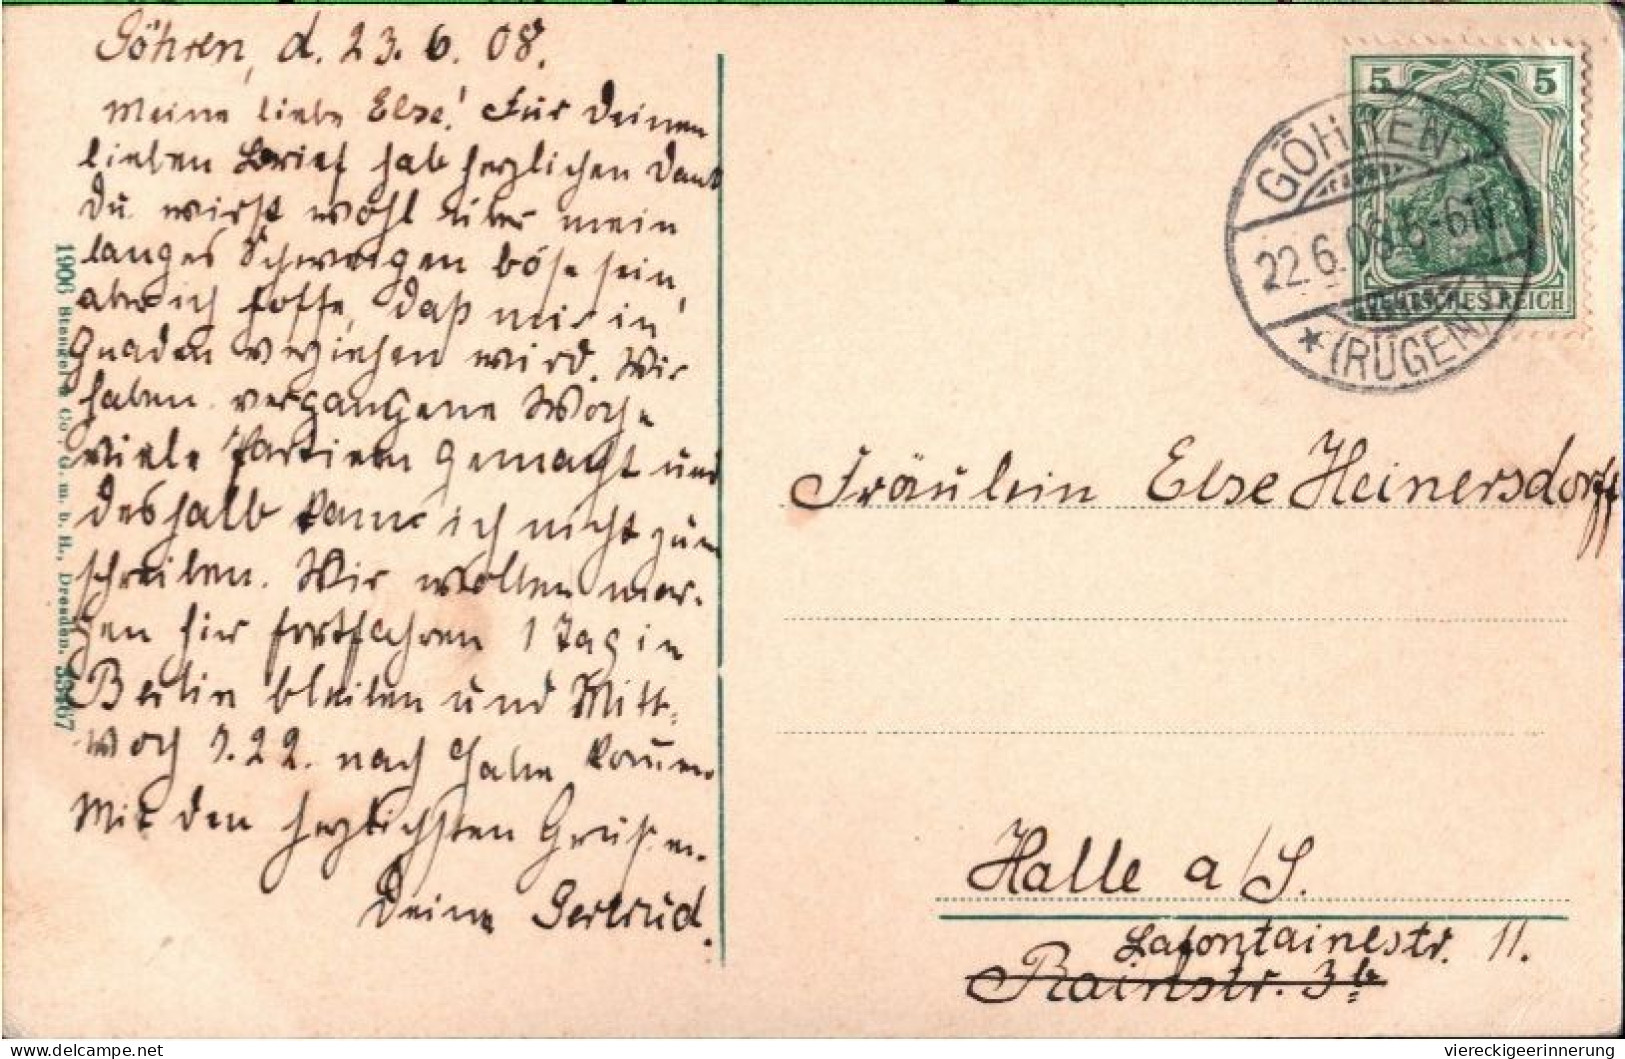 Göhren, d. 23. 6. 08.
Meine liebe Else! Für Deinen
lieben Brief hab herzlichen Dank
Du wirst wohl über mein
langes Schweigen böse sein,
aber ich hoffe, daß mir in
Gnaden verziehen wird. Wir
haben vergangene Woche
viele Partien gemacht und
deshalb kam ich nicht zum
schreiben. Wir wollen mor-
gen hier fortfahren 1 Tag in
Berlin bleiben und Mitt-
woch 7.22. nach Halle kommen
Mit den herzlichsten Grüßen.
Deine Gertrud.
1906 Stengel & Co., G. m. b. H., Dresden.
5 5
DEUTSCHES REICH
GÖHREN
22.6.08.5-6N.
* (RÜGEN)
Fräulein Else Heinersdorff
Halle a/S.
Lafontainestr. 11.
Rainstr. 3b
viereckigeerinnerung
delcampe.net